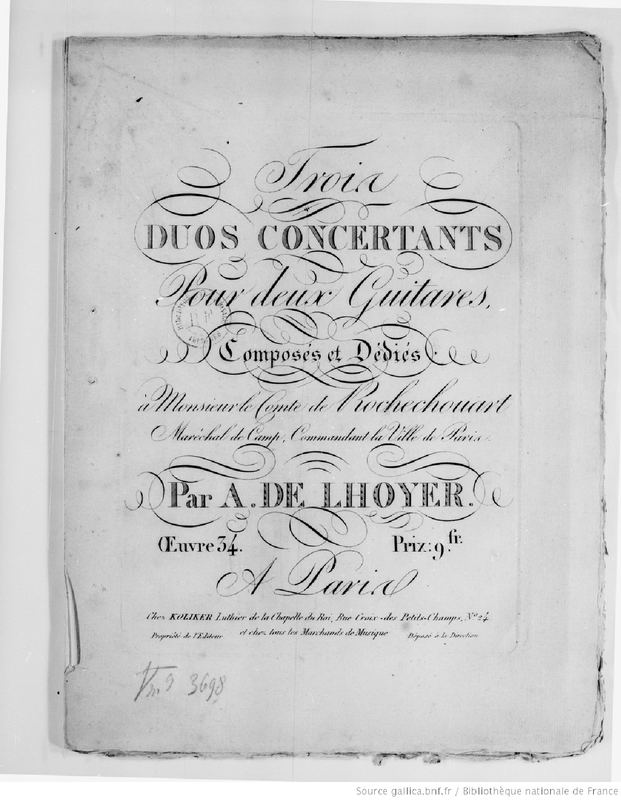 Trois
DUOS CONCERTANTS
Pour deux Guitares,
Composés et Dédiés
à Monsieur le Comte de Rochechouart
Maréchal de Camp, Commandant la Ville de Paris.
Par A. DE LHOYER.
Œuvre 34. Prix: 9.fr.
A Paris
Chez KOLIKER Luthier de la Chapelle du Roi, Rue Croix-des Petits-Champs, No. 24.
Propriété de l'Editeur et chez tous les Marchands de Musique Déposé à la Direction
Vm9 3698
Source gallica.bnf.fr / Bibliothèque nationale de France